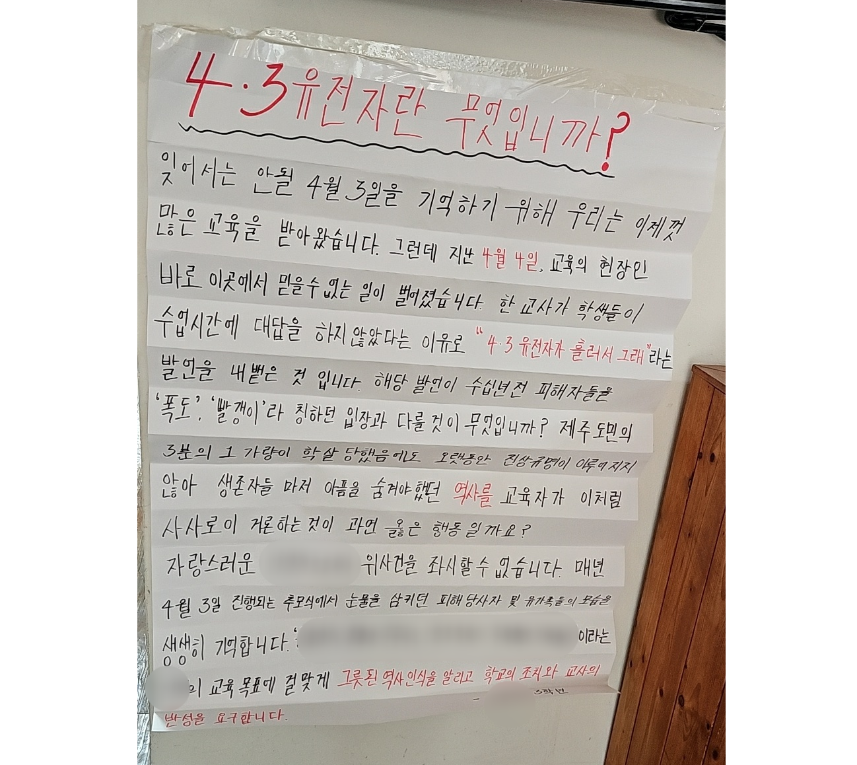 4·3유전자란 무엇입니까?
잊어서는 안될 4월 3일을 기억하기 위해 우리는 이제껏
많은 교육을 받아왔습니다. 그런데 지난 4월 4일, 교육의 현장인
바로 이곳에서 믿을수 없는 일이 벌어졌습니다. 한 교사가 학생들이
수업시간에 대답을 하지 않았다는 이유로 "4·3 유전자가 흘러서 그래"라는
발언을 내뱉은 것 입니다. 해당 발언이 수십년전 피해자들을
'폭도', '빨갱이'라 칭하던 입장과 다를 것이 무엇입니까? 제주도민의
3분의 1 가량이 학살 당했음에도 오랫동안 진상규명이 이루어지지
않아 생존자들 마저 아픔을 숨겨야했던 역사를 교육자가 이처럼
사사로이 거론하는 것이 과연 옳은 행동일까요?
자랑스러운 위사건을 좌시할 수 없습니다. 매년
4월 3일 진행되는 추모식에서 눈물을 삼키던 피해당사자 및 유가족들의 모습을
생생히 기억합니다. ' 이라는
의 교육 목표에 걸맞게 그릇된 역사인식을 알리고 학교의 조치와 교사의
반성을 요구합니다. 3학년